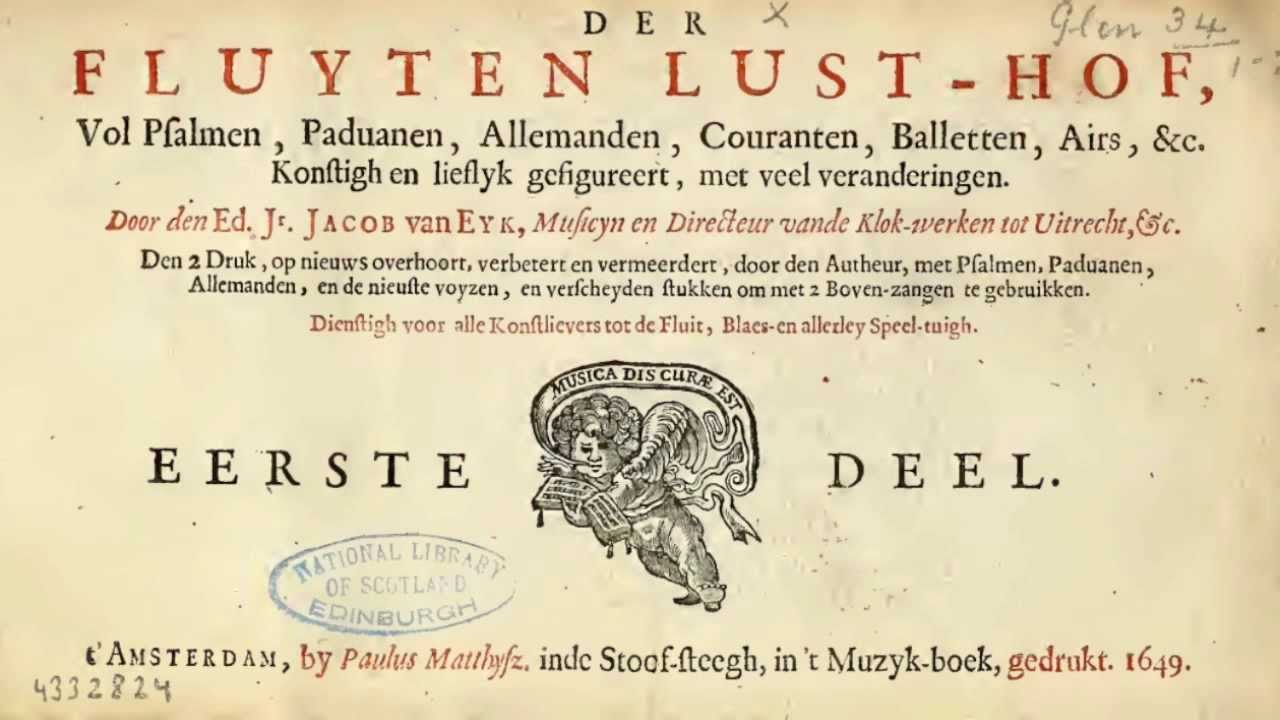 DER
Glen 34
FLUYTEN LUST-HOF,
Vol Pſalmen, Paduanen, Allemanden, Couranten, Balletten, Airs, &c.
Konſtigh en lieflyk gefigureert, met veel veranderingen.
Door den Ed. Jr. JACOB van EYK, Muſicyn en Directeur vande Klok-werken tot Uitrecht, &c.
Den 2 Druk, op nieuws overhoort, verbetert en vermeerdert, door den Autheur, met Pſalmen, Paduanen,
Allemanden, en de nieuſte voyzen, en verſcheyden ſtukken om met 2 Boven-zangen te gebruikken.
Dienſtigh voor alle Konſtlievers tot de Fluit, Blaes-en allerley Speel-tuigh.
MUSICA DIS CURÆ EST
EERSTE DEEL.
NATIONAL LIBRARY
OF SCOTLAND
EDINBURGH
t'AMSTERDAM, by Paulus Matthyſz. inde Stoof-ſteegh, in 't Muzyk-boek, gedrukt. 1649.
4332824